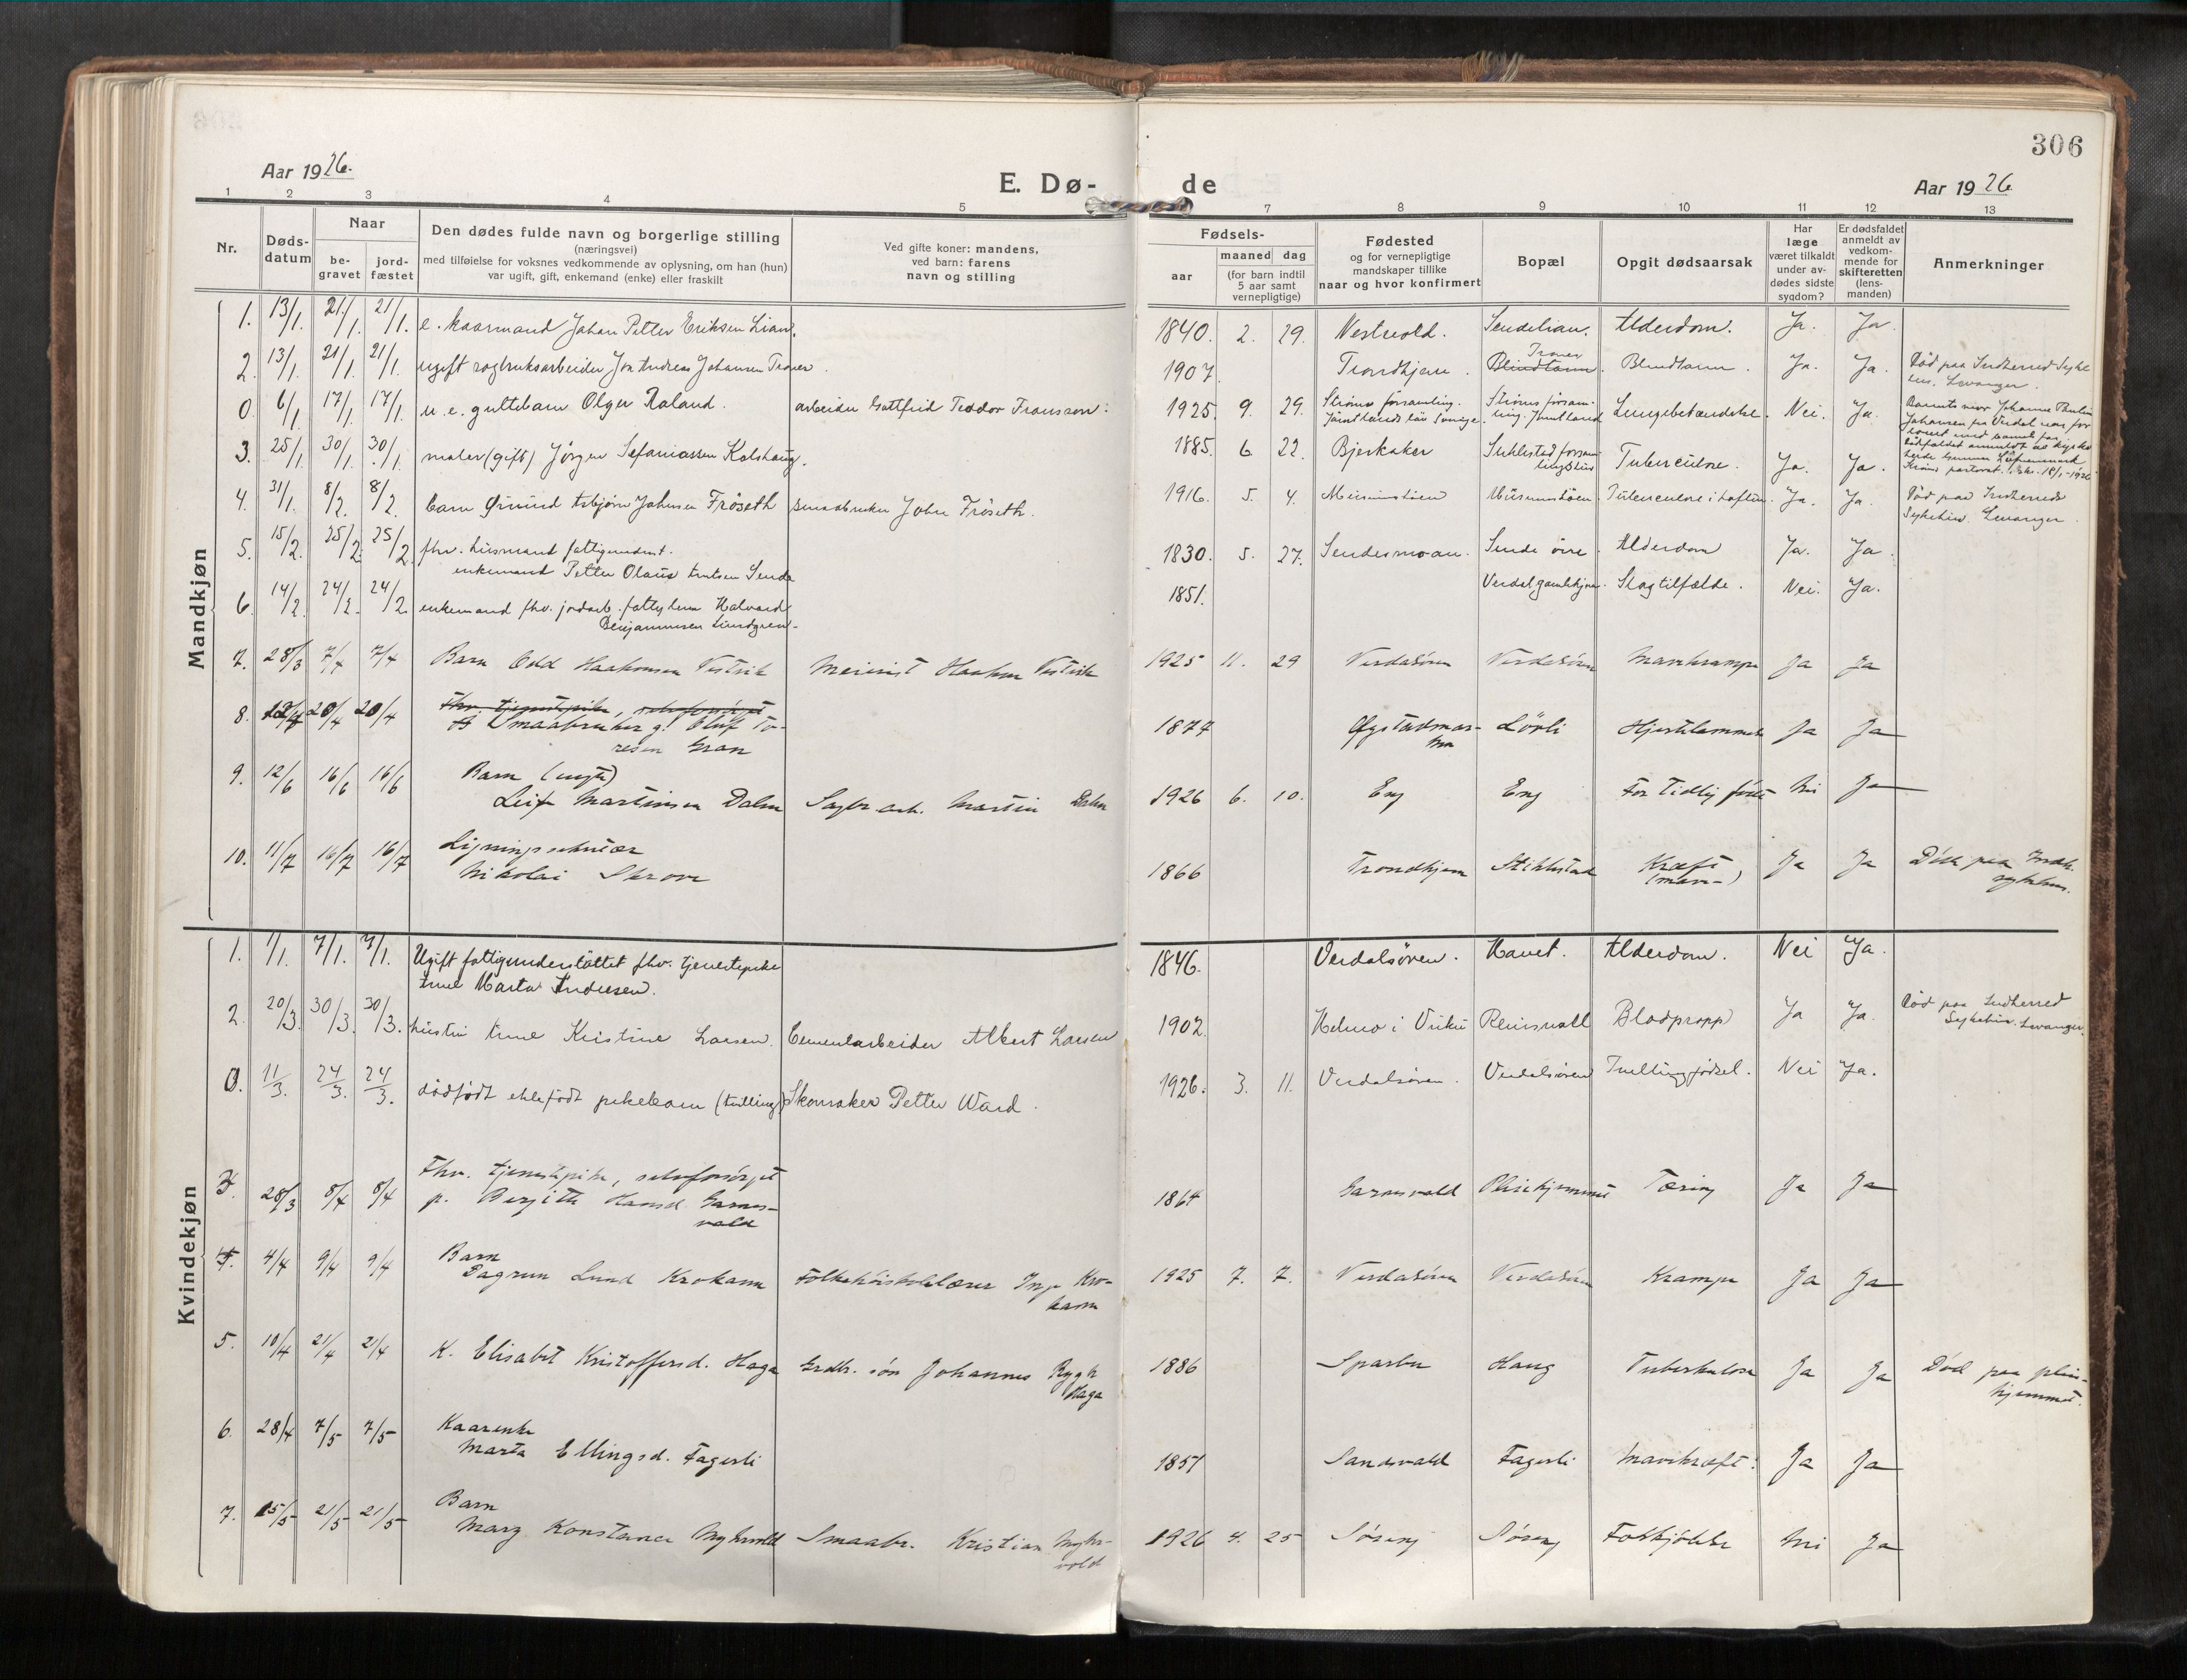 306
Aar 1926.
E. Dø-
de
Aar 1926
1 2 3 4 5 7 8 9 10 11 12 13
Nr.
Døds-
datum
Naar
be-
gravet
jord-
fæstet
Den dødes fulde navn og borgerlige stilling
(næringsvei)
med tilføielse for voksnes vedkommende av oplysning, om han (hun)
var ugift, gift, enkemand (enke) eller fraskilt
Ved gifte koner: mandens,
ved barn: farens
navn og stilling
Fødsels-
aar
maaned dag
(for barn indtil
5 aar samt
vernepligtige)
Fødested
og for vernepligtige
mandskaper tillike
naar og hvor konfirmert
Bopæl
Opgit dødsaarsak
Har
læge
været tilkaldt
under av-
dødes sidste
sygdom?
Er dødsfaldet
anmeldt av
vedkom-
mende for
skifteretten
(lens-
manden)
Anmerkninger
Mandkjøn
1. 13/1. 21/1. 21/1. e. kaarmand Johan Petter Eriksen Lian. 1840. 2. 29. Sendelian. Alderdom. Ja. Ja.
2. 13/1. 21/1. 21/1. ugift sagbruksarbeider Jon Andreas Johansen Trones. 1907. Trondhjem. Trones
Blindtarm. Blindtarm. Ja. Ja. Død paa Indherred Syke
hus. Levanger.
0. 6/1. 17/1. 17/1. u. e. guttebarn Olger Roland. arbeider Gottfrid Teodor Fransson: 1925. 9. 29. Ströms församling.
Jämtlands län Sverige. Ströms försam-
ling. Jämtland Lungebetændelse. Nei. Ja. Barnets mor Johanne
Johansen fra Verdal
3. 25/1. 30/1. 30/1. maler (gift) Jørgen Sefaniassen Kolshaug. 1885. 6. 22. Bjerkaker Tuberculose. Ja. Ja.
4. 31/1. 8/2. 8/2. barn Asbjørn Johnsen Frøseth smaabruker John Frøseth. 1916. 5. 4. Tuberculose i hoften. Ja. Ja. Død paa Indherreds
Sykehus. Levanger.
5. 15/2. 25/2. 25/2. fhv. husmand fattigunderst.
enkemand Petter Olaus Sende 1830. 5. 27. Sendesmoan. Sende øvre. Alderdom Ja. Ja.
6. 14/2. 24/2. 24/2. enkemand fhv. jordarb. Halvard
Benjaminsen Lundgren 1851. Slagtilfælde. Nei. Ja.
7. 28/3 7/4 7/4 Barn Odd Haakonsen Vestvik Meierist Haakon Vestvik 1925 11. 29 Verdalsøren Verdalsøren Ja Ja
8. 20/4 20/4 Fhv. tjenestepike, selvforsørget
Smaabruker g. Oluf To-
resen Gran 1877 Løvli Hjertelammelse Ja Ja
9. 12/6 16/6 16/6 Barn
Leif Martinsen Dalen Sagbr. arb. Martin Dalen 1926 6. 10. Eng Eng For tidlig født Nei Ja
10. 11/7 16/7 16/7 Ligningssekretær
Nikolai Skrove 1866 Trondhjem Stiklestad Kræft
Ja Ja Død paa Indh.
sykehus.
Kvindekjøn
1. 1/1. 7/1. 7/1. Ugift fattigunderstøttet fhv. tjenestepike
Marta Andersen. 1846. Verdalsøren. Alderdom. Nei Ja.
2. 20/3. 30/3. 30/3. hustru Kristine Larsen. Cementarbeider Albert Larsen 1902. Reinsvall Blodpropp Ja Ja. Død paa Indherred
Sykehus. Levanger.
0. 11/3. 24/3. 24/3. dødfødt ektefødt pikebarn (tvilling) Skomaker Petter Ward. 1926. 3. 11. Verdalsøren. Verdalsøren Tvillingfødsel. Nei Ja.
3. 28/3 8/4 8/4 Fhv. tjenestepike, selvforsørget
p. Bergitte Hansd. Garnes-
vald 1864 Garnesvald Pleiehjemmet Tæring Ja Ja
4. 4/4 9/4 9/4 Barn
Dagrun Lund Krokann Folkehøiskolelærer Inge Kro-
kann 1925 7. 7. Verdalsøren Verdalsøren Krampe Ja Ja
5. 10/4 21/4 21/4 K. Elisabet Kristoffersd. Haga Grdbr. søn Johannes Rygh
Haga 1886 Sparbu Haug Tuberkulose Ja Ja Død paa pleie-
hjemmet.
6. 28/4 7/5 7/5 Kaarenke
Marta Ellingsd. Fagerli 1851 Sandsvald Fagerli Mavekræft. Ja Ja
7. 15/5 21/5 21/5 Barn
Marg Konstance Myhrvold Smaabr. Kristian Myhr-
vold 1926 4. 25 Nei Ja